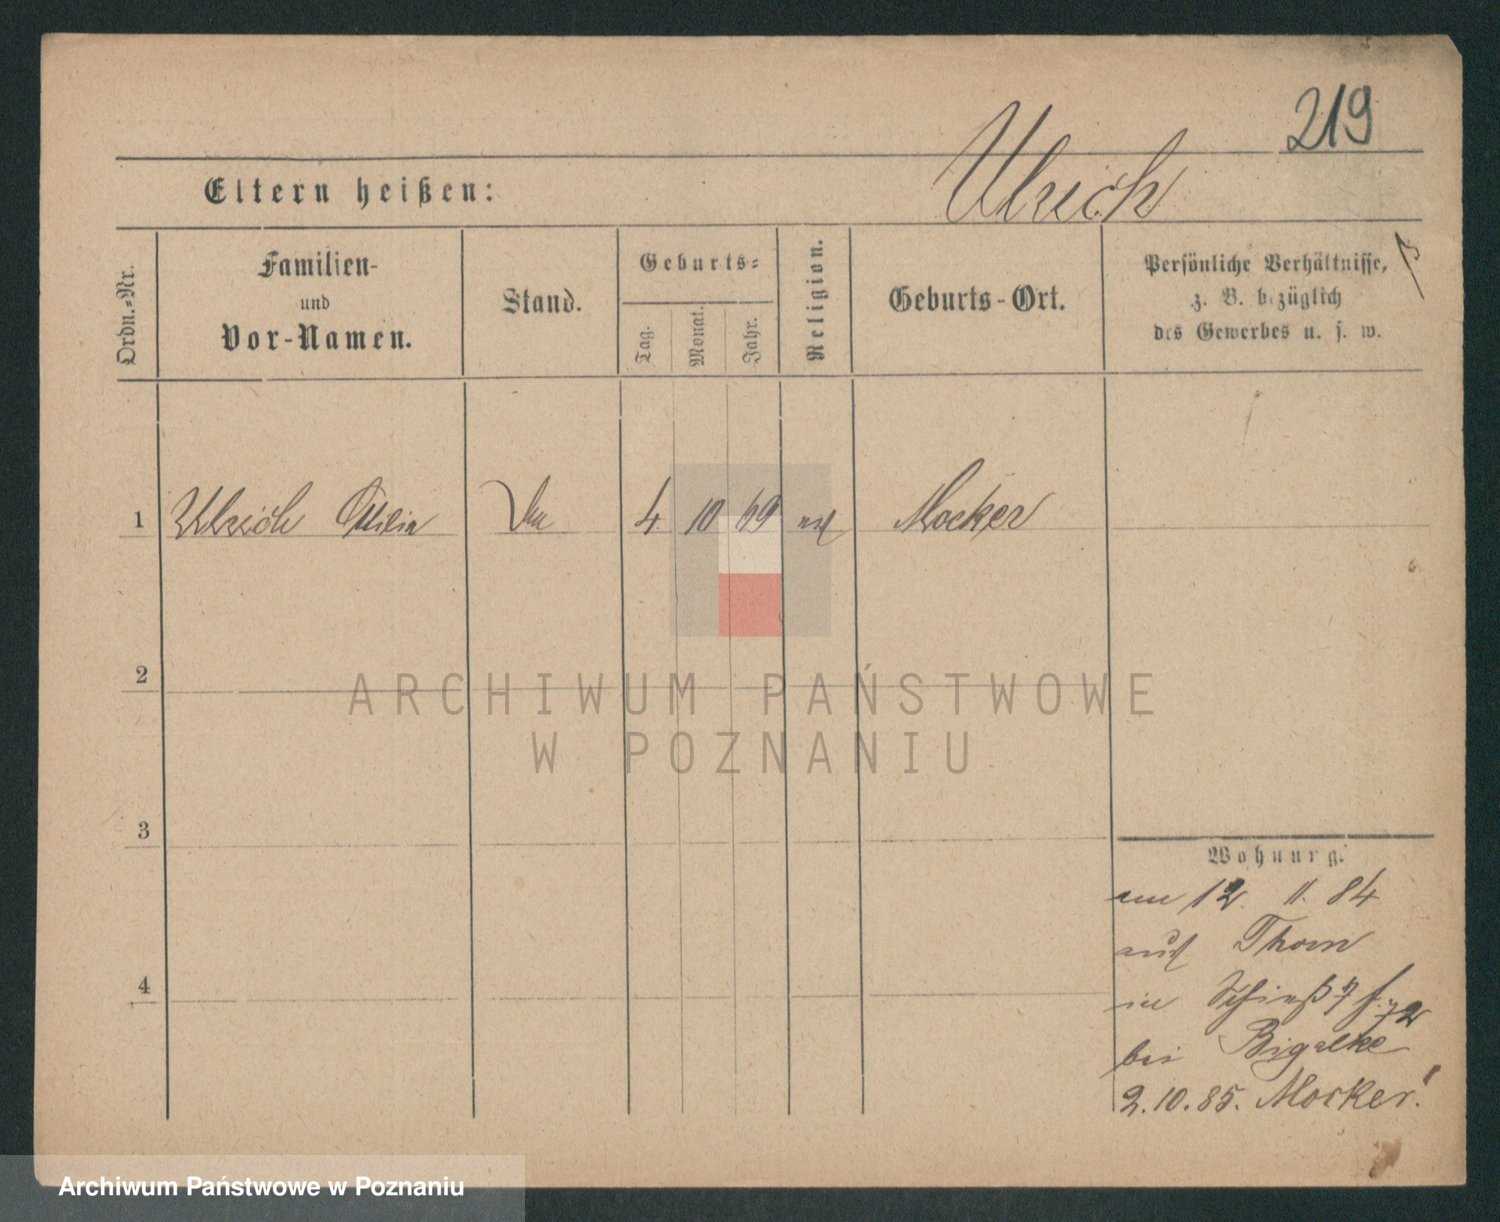 219
Eltern heißen: Ulrich
Ordn.-Nr.
Familien-
und
Vor-Namen.
Stand.
Geburts-
Tag.
Monat.
Jahr.
Religion.
Geburts-Ort.
Persönliche Verhältnisse,
z. B. bezüglich
des Gewerbes u. s. w.
1 Ulrich Ottilie 4 10 69 Mocker
2
ARCHIWUM PAŃSTWOWE
W POZNANIU
3
Wohnung.
am 12. 11. 84
aus Thorn
4
in
bei Bigalke
2.10.85. Mocker!
Archiwum Państwowe w Poznaniu